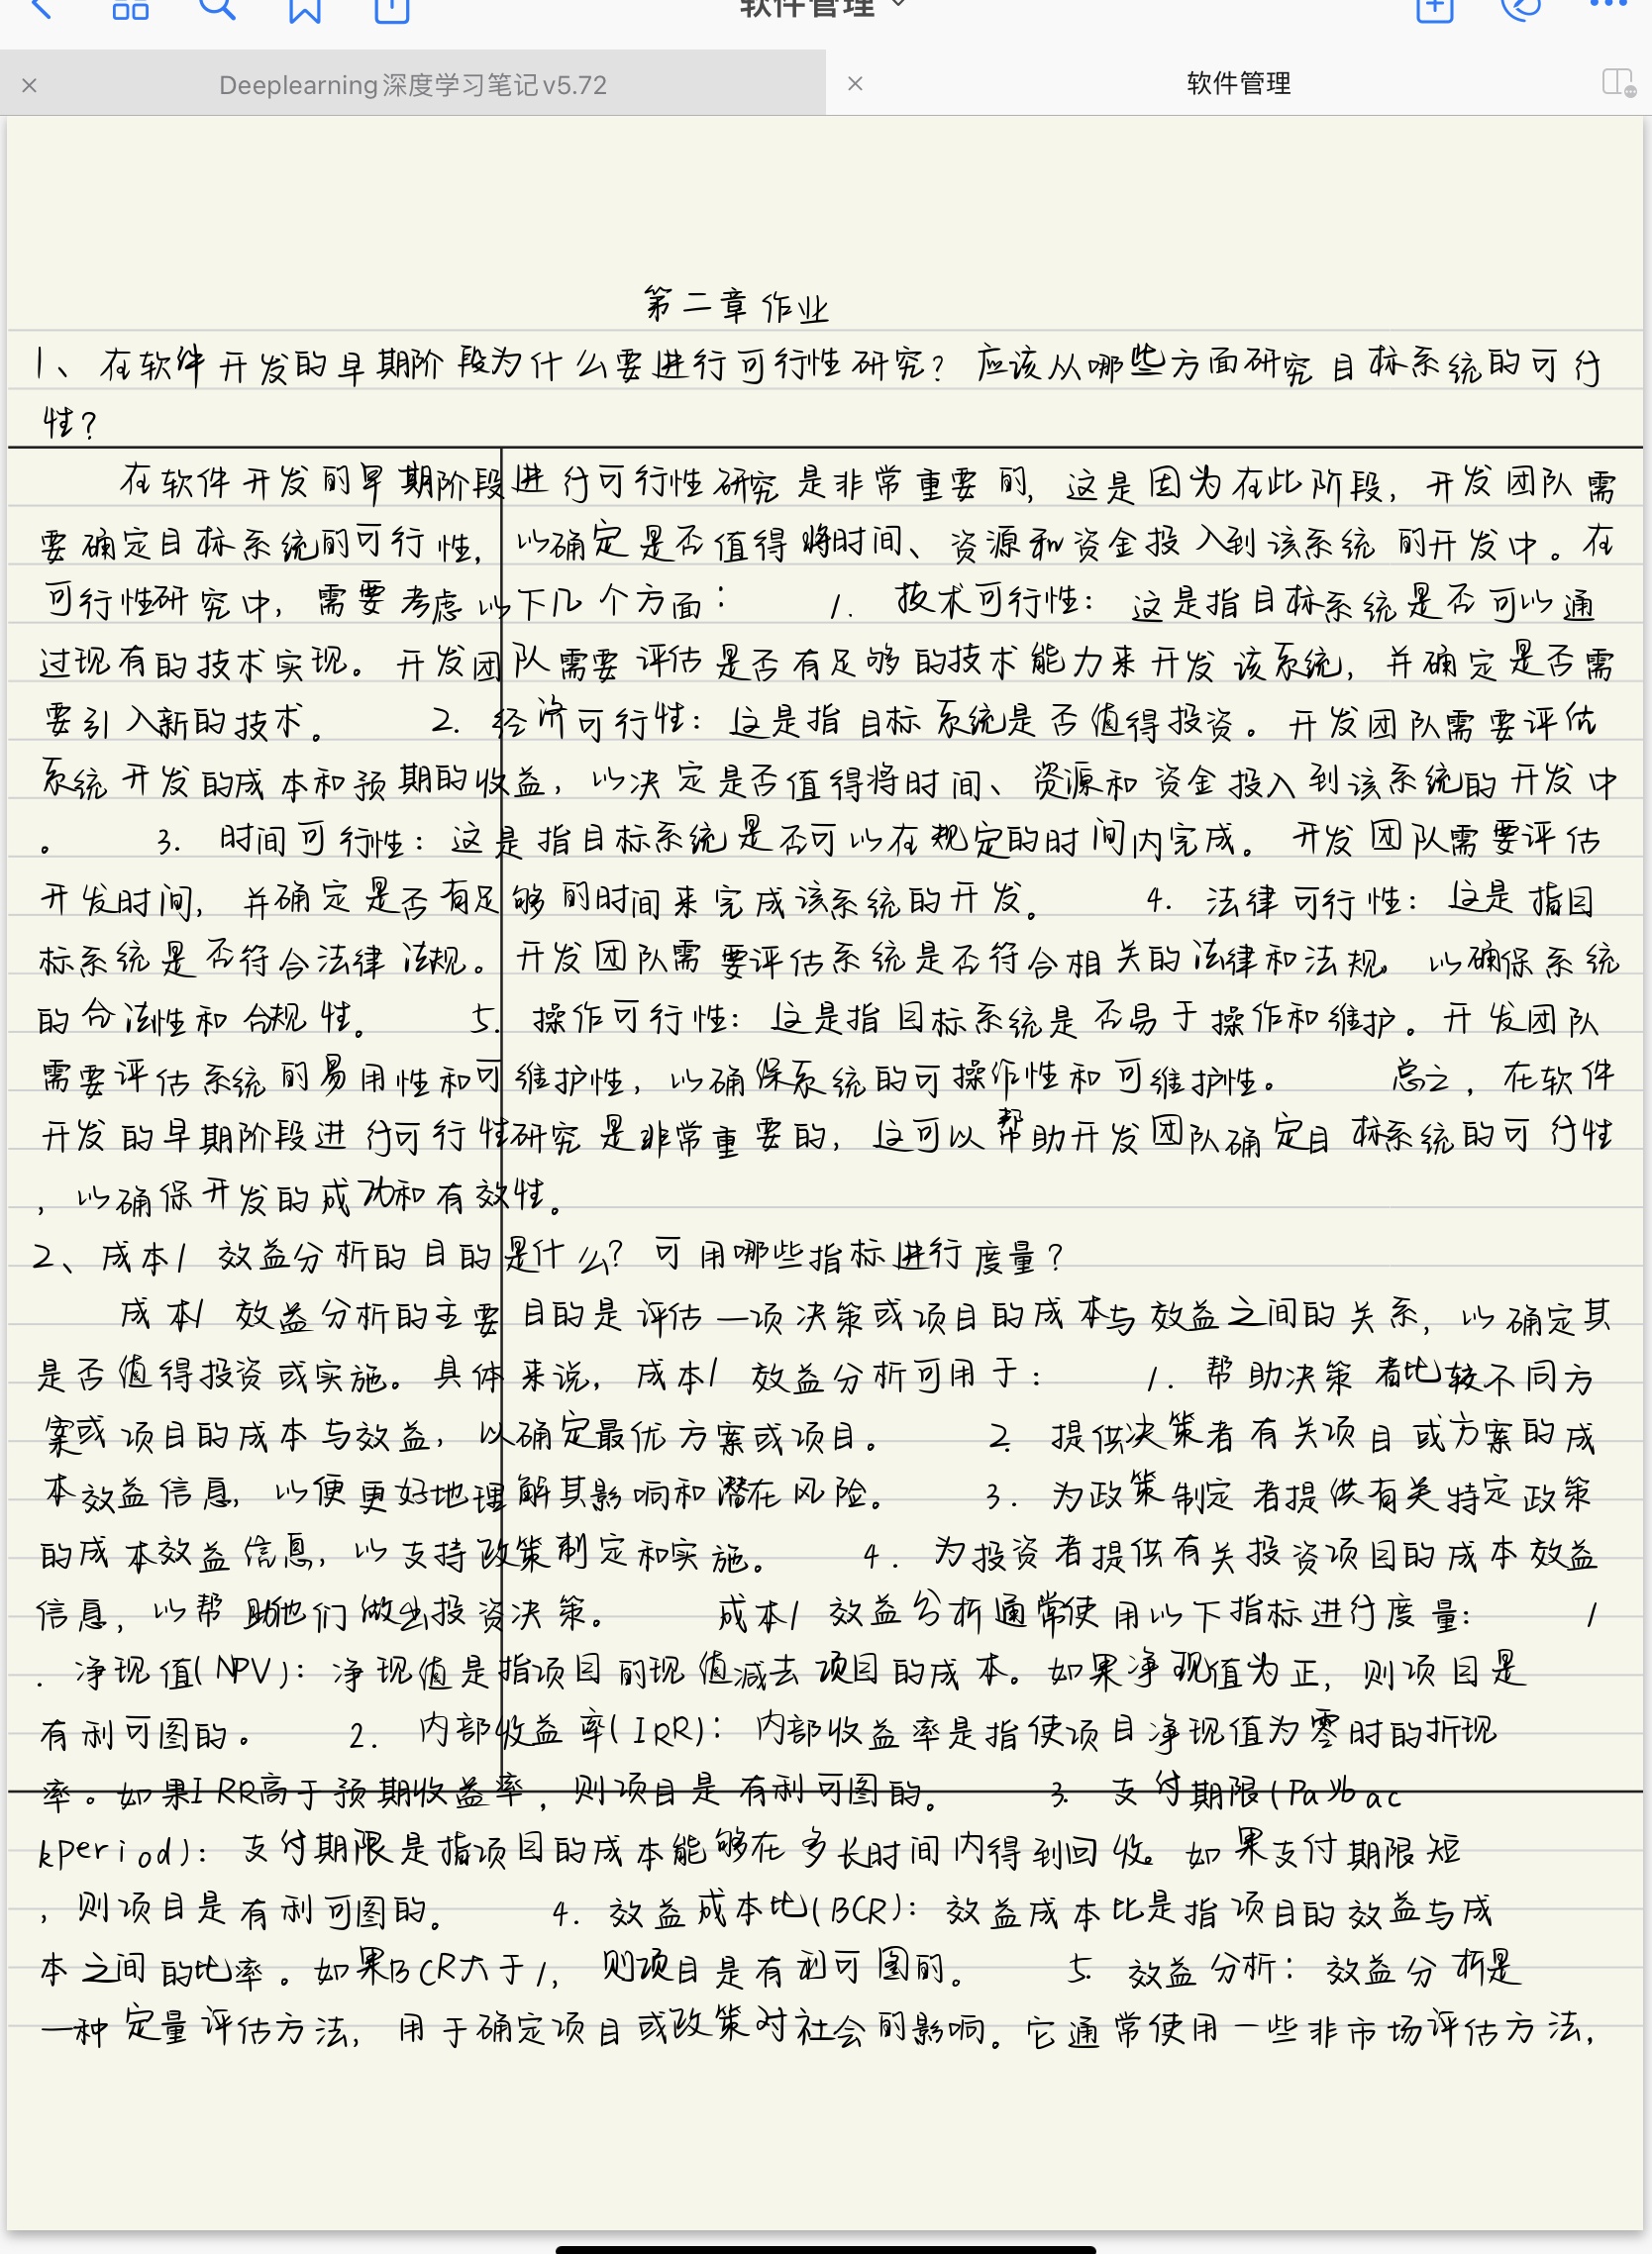 软件管理
Deeplearning深度学习笔记v5.72
软件管理
第二章作业
1、在软件开发的早期阶段为什么要进行可行性研究？应该从哪些方面研究目标系统的可行
性？
在软件开发的早期阶段进行可行性研究是非常重要的，这是因为在此阶段，开发团队需
要确定目标系统的可行性，以确定是否值得将时间、资源和资金投入到该系统的开发中。在
可行性研究中，需要考虑以下几个方面： 1. 技术可行性：这是指目标系统是否可以通
过现有的技术实现。开发团队需要评估是否有足够的技术能力来开发该系统，并确定是否需
要引入新的技术。 2. 经济可行性：这是指目标系统是否值得投资。开发团队需要评估
系统开发的成本和预期的收益，以决定是否值得将时间、资源和资金投入到该系统的开发中
。 3. 时间可行性：这是指目标系统是否可以在规定的时间内完成。开发团队需要评估
开发时间，并确定是否有足够的时间来完成该系统的开发。 4. 法律可行性：这是指目
标系统是否符合法律法规。开发团队需要评估系统是否符合相关的法律和法规，以确保系统
的合法性和合规性。 5. 操作可行性：这是指目标系统是否易于操作和维护。开发团队
需要评估系统的易用性和可维护性，以确保系统的可操作性和可维护性。 总之，在软件
开发的早期阶段进行可行性研究是非常重要的，这可以帮助开发团队确定目标系统的可行性
，以确保开发的成功和有效性。
2、成本/效益分析的目的是什么？可用哪些指标进行度量？
成本/效益分析的主要目的是评估一项决策或项目的成本与效益之间的关系，以确定其
是否值得投资或实施。具体来说，成本/效益分析可用于： 1. 帮助决策者比较不同方
案或项目的成本与效益，以确定最优方案或项目。 2. 提供决策者有关项目或方案的成
本效益信息，以便更好地理解其影响和潜在风险。 3. 为政策制定者提供有关特定政策
的成本效益信息，以支持政策制定和实施。 4. 为投资者提供有关投资项目的成本效益
信息，以帮助他们做出投资决策。 成本/效益分析通常使用以下指标进行度量： 1
. 净现值(NPV)：净现值是指项目的现值减去项目的成本。如果净现值为正，则项目是
有利可图的。 2. 内部收益率(IRR)：内部收益率是指使项目净现值为零时的折现
率。如果IRR高于预期收益率，则项目是有利可图的。 3. 支付期限(Paybac
kPeriod)：支付期限是指项目的成本能够在多长时间内得到回收。如果支付期限短
，则项目是有利可图的。 4. 效益成本比(BCR)：效益成本比是指项目的效益与成
本之间的比率。如果BCR大于1，则项目是有利可图的。 5. 效益分析：效益分析是
一种定量评估方法，用于确定项目或政策对社会的影响。它通常使用一些非市场评估方法，